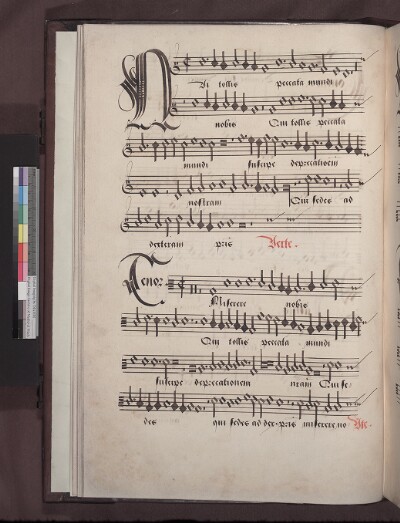 Qui tollis peccata mundi
nobis Qui tollis peccata
mundi suscipe deprecationem
nostram Qui sedes ad
dexteram pris Verte.
Tenor.
Miserere nobis
Qui tollis peccata mundi
suscipe deprecationem nram Qui se/
des qui sedes ad dex. pris miserere no